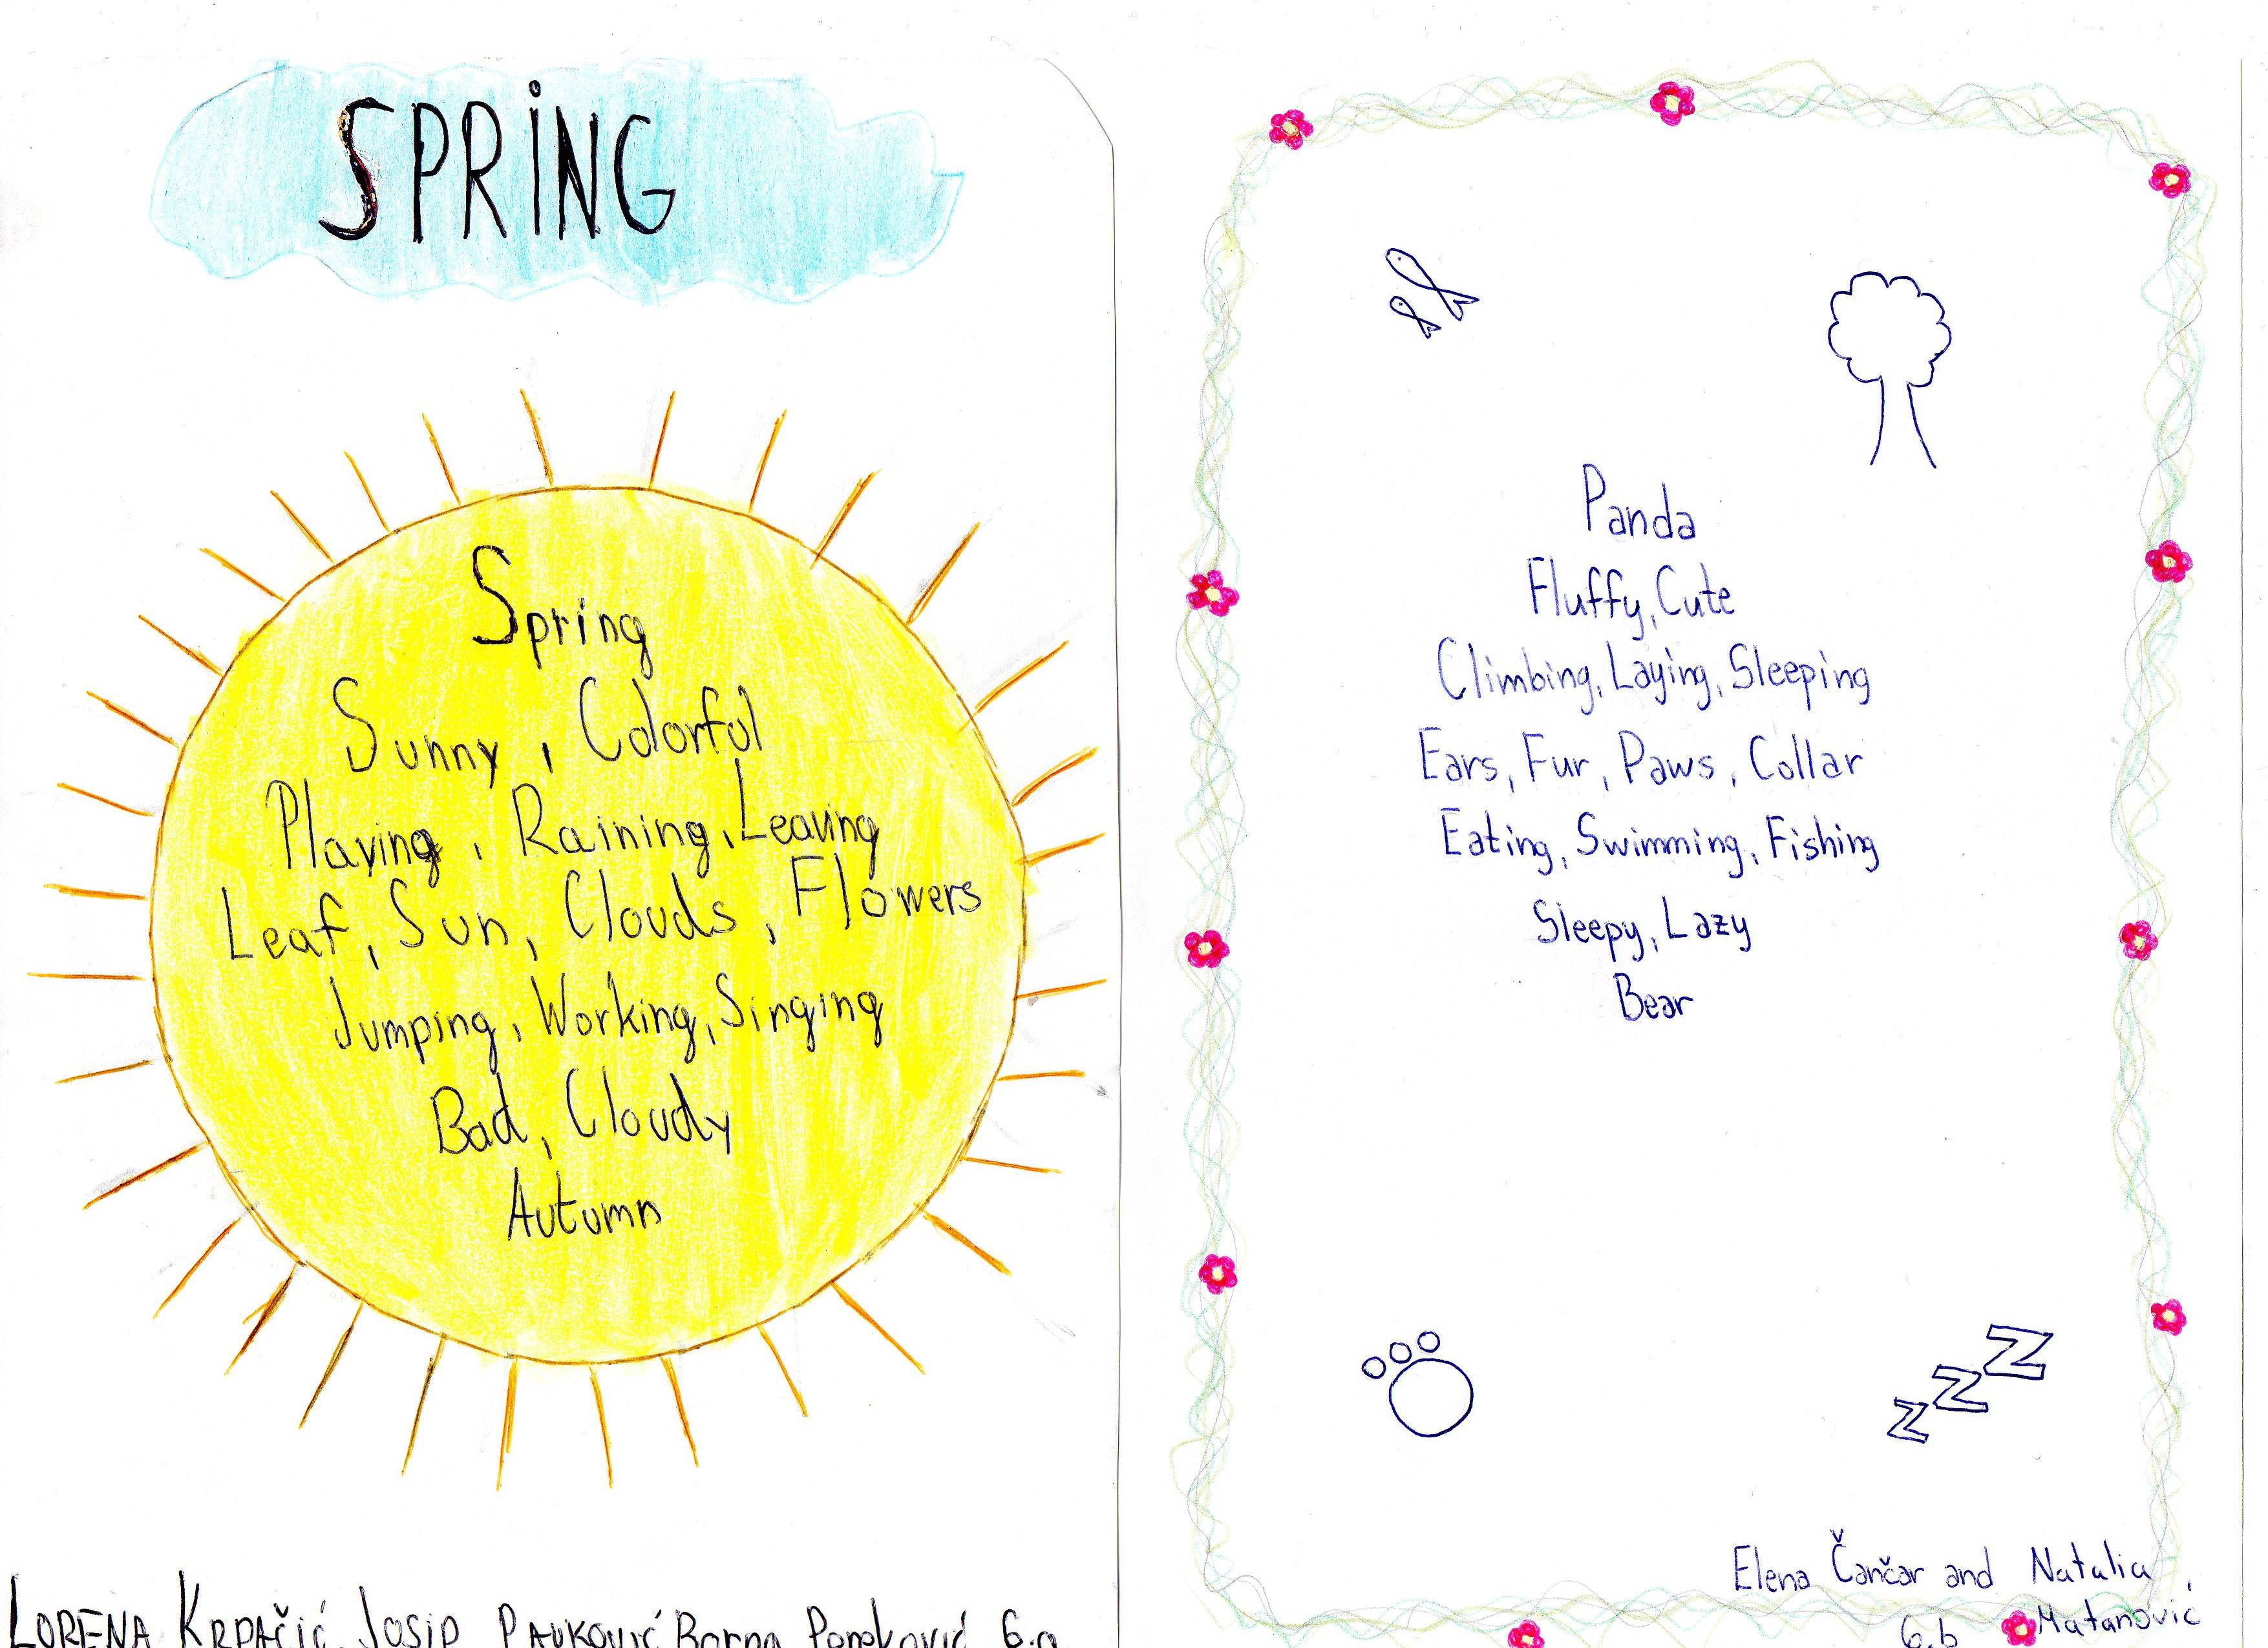 SPRING
Spring
Sunny, Colorful
Playing, Raining, Leaving
Leaf, Sun, Clouds, Flowers
Jumping, Working, Singing
Bad, Cloudy
Autumn
LORENA KRPAČIĆ, JOSIP PAVKOVIĆ Borna 6.a
Panda
Fluffy, Cute
Climbing, Laying, Sleeping
Ears, Fur, Paws, Collar
Eating, Swimming, Fishing
Sleepy, Lazy
Bear
z z z
Elena Čančar and Natalia
6.b Matanović